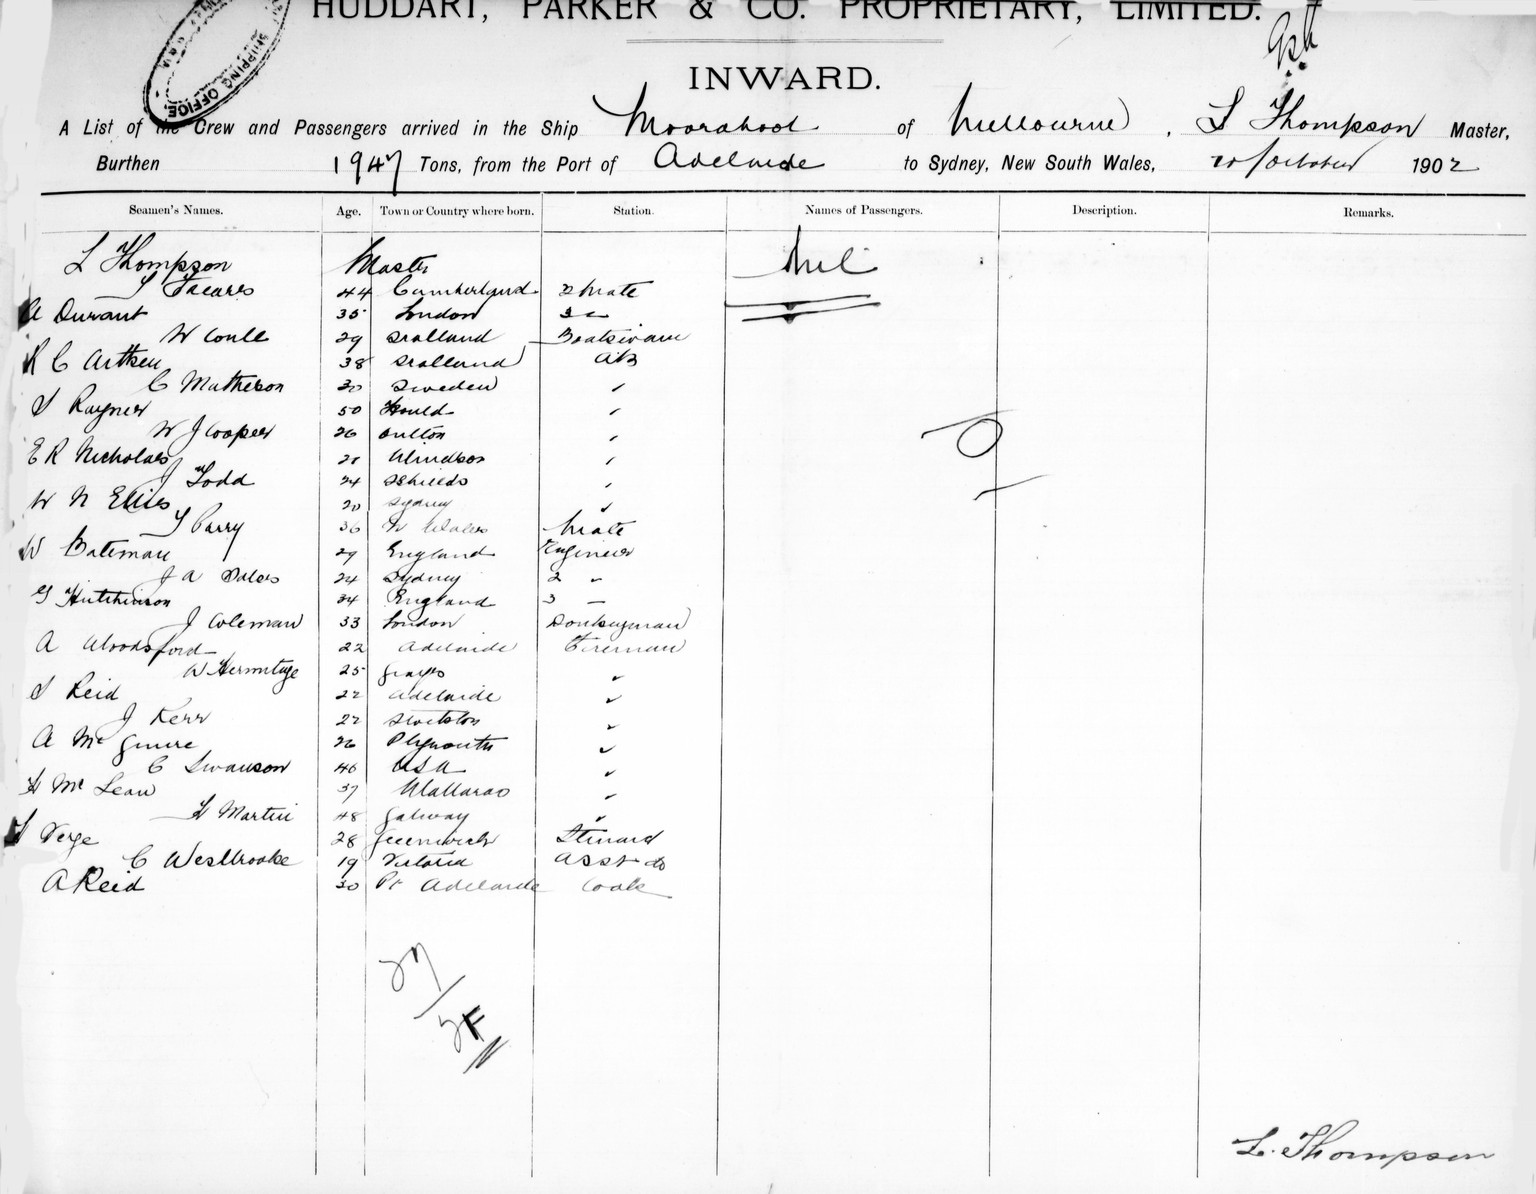 HUDDART, PARKER & CO. PROPRIETARY, LIMITED.
SHIPPING OFFICE,
INWARD.
A List of the Crew and Passengers arrived in the Ship of Melbourne, L Thompson Master,
Burthen 1947 Tons, from the Port of Adelaide to Sydney, New South Wales, 20/October 1902
Seamen's Names. Age. Town or Country where born. Station. Names of Passengers. Description. Remarks.
L Thompson Master Nil
44 Cumberland 2 Mate
A Durant 35 London 3 "
W Coull 29 Scotland Boatswain
R C Aitken 38 Scotland AB
C Matheson 30 Sweden "
S Rayner 50 "
W J Cooper 26 Oulton "
E R Nicholaes 21 Windsor "
J Todd 24 Shields "
W N Ellis 20 Sydney "
T Parry 36 N Wales Mate
W Bateman 29 England Engineer
J A 24 Sydney 2 "
G Hutchinson 34 England 3 "
J Coleman 33 London Donkeyman
A Woodsford 22 Adelaide Fireman
W Hermitage 25 Grays "
S Reid 22 Adelaide "
J Kerr 22 "
A McGuire 26 Plymouth "
C Swanson 46 USA "
H McLean 37 Wallaroo "
H Martin 48 Galway "
H Verge 28 Greenwich Steward
C Westbrooke 19 Victoria Asst do
A Reid 30 Pt Adelaide Cook
27
L. Thompson